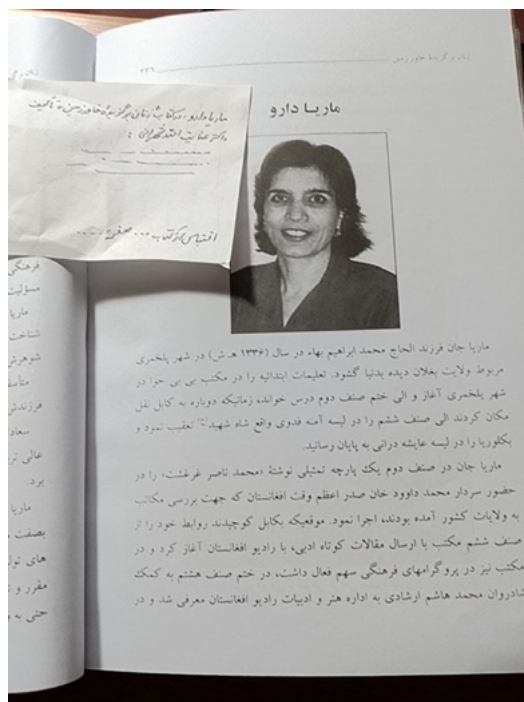 زنان برگزیدهٔ خاور زمین
۲۳۶
ماریا دارو
ماریا دارو، در کتاب زنان برگزیده خاور زمین تألیف
داکتر عنایت الله شهرانی :
اقتباس از کتاب ... صفحه ....
ماریا جان فرزند الحاج محمد ابراهیم بهاء در سال (۱۳۳۶ هـ ش) در شهر پلخمری
مربوط ولایت بغلان دیده بدنیا گشود. تعلیمات ابتدائیه را در مکتب بی بی حوا در
شهر پلخمری آغاز و الی ختم صنف دوم درس خواند، زمانیکه دوباره به کابل نقل
مکان کردند الی صنف ششم را در لیسه آمنه فدوی واقع شاه شهید تعقیب نمود و
بکلوریا را در لیسه عایشه درانی به پایان رسانید.
ماریا جان در صنف دوم یک پارچه تمثیلی نوشتهٔ «محمد ناصر غرغشت» را در
حضور سردار محمد داوود خان صدر اعظم وقت افغانستان که جهت بررسی مکاتب
به ولایات کشور آمده بودند، اجرا نمود. موقعیکه بکابل کوچیدند روابط خود را از
صنف ششم مکتب با ارسال مقالات کوتاه ادبی، با رادیو افغانستان آغاز کرد و در
مکتب نیز در پروگرامهای فرهنگی سهم فعال داشت، در ختم صنف هشتم به کمک
شادروان محمد هاشم ارشادی به اداره هنر و ادبیات رادیو افغانستان معرفی شد و در
فرهنگی
مسؤلیت
ماریا
شناخت
شوهرش
متأس
فرزندش
سعاد
عالی تر
برد.
ماریا
بصفت
های تول
مقرر و
حتی به